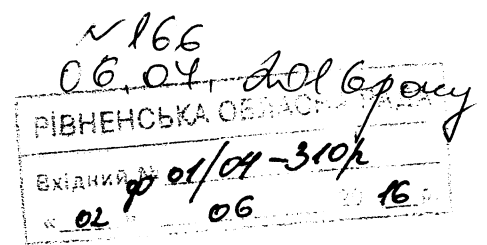 №166
06.04.2016 року
РІВНЕНСЬКА ОБЛАСНА РАДА
Вхідний № Ф 01/04-310р
« 02 » 06 20 16 р.